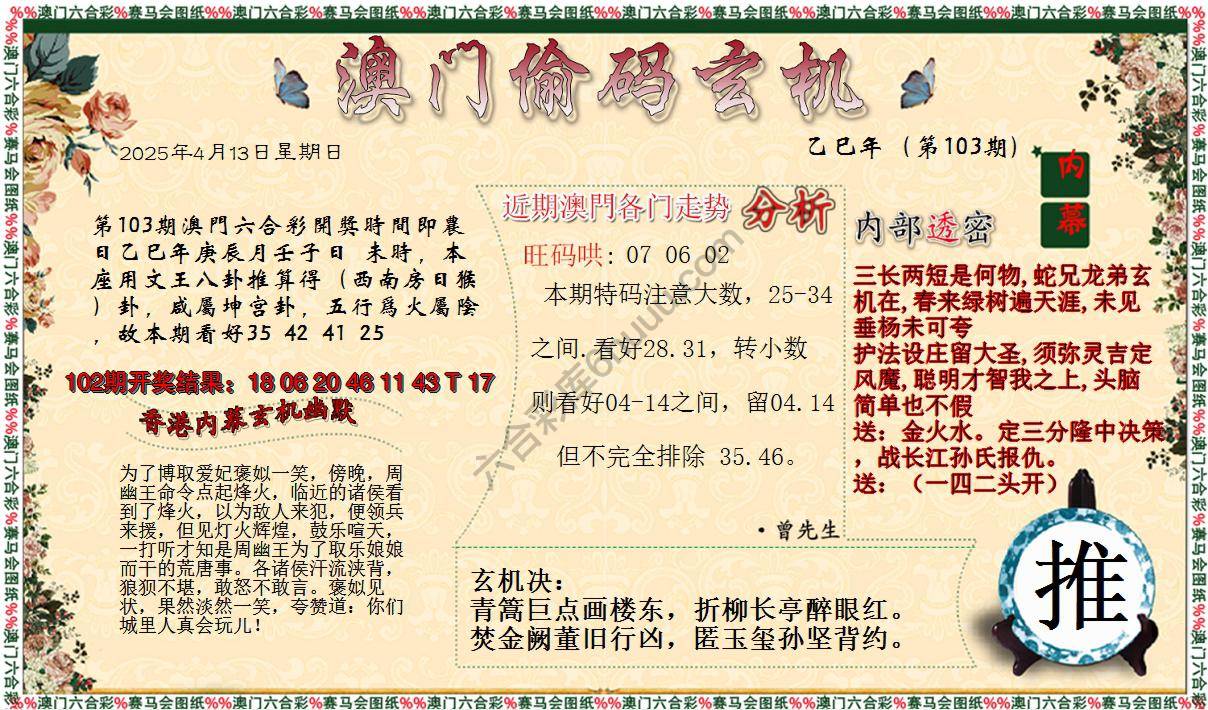 %%澳门六合彩%赛马会图纸%%澳门六合彩%赛马会图纸%%澳门六合彩%赛马会图纸%%
澳门偷码玄机
2025年4月13日星期日
乙巳年（第103期）
内
幕
第103期澳門六合彩開獎時間即農
日乙巳年庚辰月壬子日 未時，本
座用文王八卦推算得（西南房日猴
）卦，咸屬坤宫卦，五行爲火屬陰
，故本期看好35 42 41 25
102期开奖结果：18 06 20 46 11 43 T 17
香港内幕玄机幽默
为了博取爱妃褒姒一笑，傍晚，周
幽王命令点起烽火，临近的诸侯看
到了烽火，以为敌人来犯，便领兵
来援，但见灯火辉煌，鼓乐喧天，
一打听才知是周幽王为了取乐娘娘
而干的荒唐事。各诸侯汗流浃背，
狼狈不堪，敢怒不敢言。褒姒见
状，果然淡然一笑，夸赞道：你们
城里人真会玩儿！
近期澳門各门走势 分析
旺码哄: 07 06 02
本期特码注意大数，25-34
之间.看好28.31，转小数
则看好04-14之间，留04.14
但不完全排除 35.46。
·曾先生
内部透密
三长两短是何物,蛇兄龙弟玄
机在,春来绿树遍天涯,未见
垂杨未可夸
护法设庄留大圣,须弥灵吉定
风魔,聪明才智我之上,头脑
简单也不假
送：金火水。定三分隆中决策
，战长江孙氏报仇。
送：（一四二头开）
玄机决：
青篙巨点画楼东，折柳长亭醉眼红。
焚金阙董旧行凶，匿玉玺孙坚背约。
推